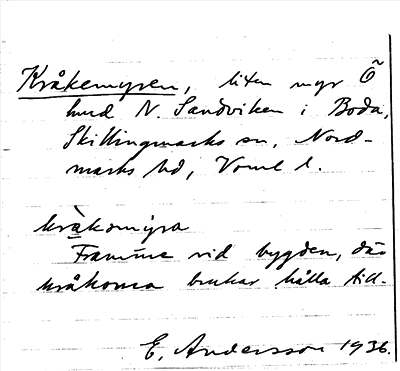 Kråkemyren, liten myr Ö
hund N. Sandviken i Boda,
Skillingmarks sn, Nord-
marks hd, Vrml l.
kràkomýra
Framme vid bygden, där
kråkorna brukar hålla till.
E. Andersson 1936.